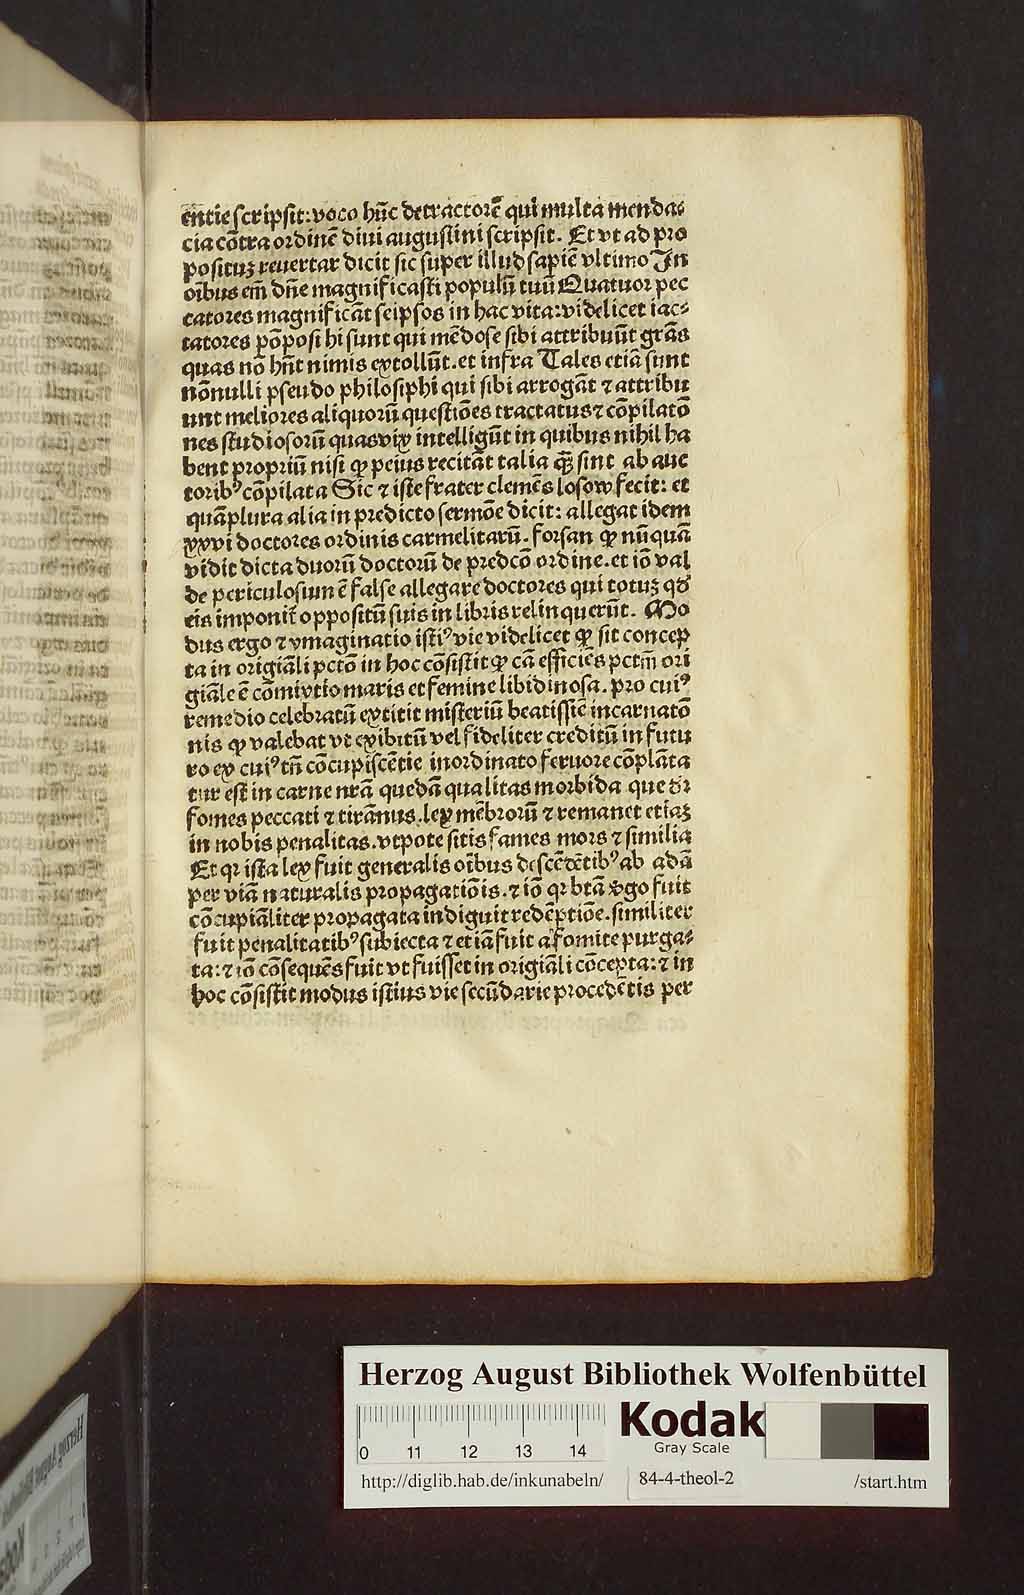 entie scripsit: voco hūc detractorē qui multa menda⸗
cia cōtra ordinē diui augustini scripsit. Et vt ad pro
posituꝫ reuertar dicit sic super illud sapiē vltimo In
oībus em̄ dn̄e magnificasti populū tuū Quatuor pec
catores magnificāt seipsos in hac vita: videlicet iac⸗
tatores pōposi hi sunt qui mēdose sibi attribuūt grās
quas nō hn̄t nimis extollūt. et infra Tales etiā sunt
nōnulli pseudo philosiphi qui sibi arrogāt ⁊ attribu
unt meliores aliquorū questiōes tractatus ⁊ cōpilatō
nes studiosorū quas vix intelligūt in quibus nihil ha
bent propriū nisi ꝙ peius recitāt talia ꝙ̄ sint ab auc
toribꝰ cōpilata Sic ⁊ iste frater clemēs losow fecit: et
quāplura alia in predicto sermōe dicit: allegat idem
xxvi doctores ordinis carmelitarū. forsan ꝙ nū quā
vidit dicta duorū doctorū de predcō ordine. et iō val
de periculosiun ē false allegare doctores qui totuꝫ qd̄
eis imponit̄ oppositū suis in libris relinquerūt. Mo
dus ergo ⁊ ymaginatio istiꝰ vie videlicet ꝙ sit concep
ta in origiāli pctō in hoc cōsistit ꝙ cā efficiēs pctm̄ ori
giāle ē cōmixtio maris et femine libidinosa. pro cuiꝰ
remedio celebratū extitit misteriū beatissiē incarnatō
nis ꝙ valebat vt exibitū vel fideliter creditū in futu
ro ex cuiꝰ tn̄ cōcupiscētie inordinato feruore cōplāta
tur est in carne nrā quedā qualitas morbida que dr̄
fomes peccati ⁊ tirānus. lex mēbrorū ⁊ remanet etiaꝫ
in nobis penalitas. vtpote sitis fames mors ⁊ similia
Et qr ista lex fuit generalis oībus descēdētibꝰ ab adā
per viā naturalis propagatiōis. ⁊ iō qr btā v̄go fuit
cōcupiāliter propagata indiguit redēptiōe. similiter
fuit penalitatibꝰ subiecta ⁊ etiā fuit a fomite purga⸗
ta: ⁊ iō cōsequēs fuit vt fuisset in origiāli cōcepta: ⁊ in
hoc cōsistit modus istius vie secūdarie procedētis per
Herzog August Bibliothek Wolfenbüttel
0 11 12 13 14
Kodak
Gray Scale
http://diglib.hab.de/inkunabeln/ 84-4-theol-2 /start.htm